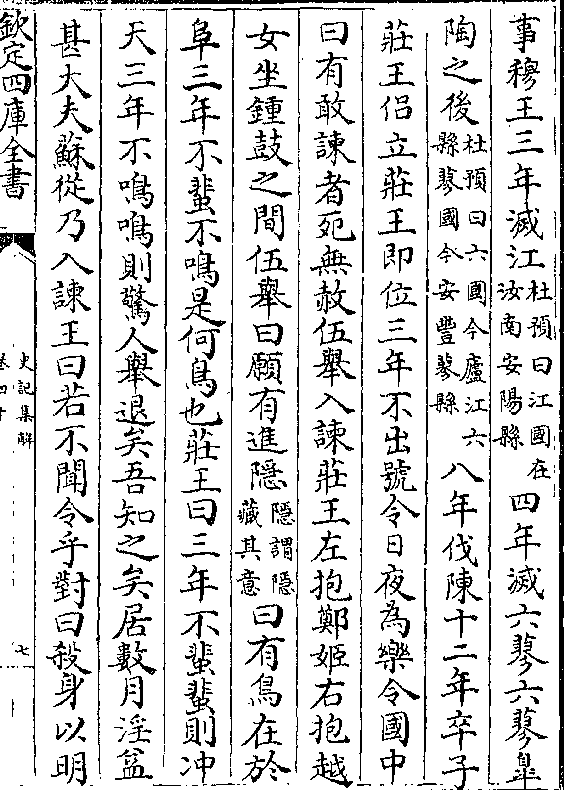 事穆王三年滅江杜預曰江國在汝南安陽縣四年滅六蓼六蓼皐
陶之後杜預曰六國今廬江六縣蓼國今安豐蓼縣八年伐陳十二年卒子
莊王侣立莊王即位三年不出號令日夜為樂令國中
曰有敢諫者死無赦伍舉入諫莊王左抱鄭姬右抱越
女坐鍾鼓之間伍舉曰願有進隱隱謂隱藏其意曰有鳥在於
阜三年不蜚不鳴是何鳥也莊王曰三年不蜚蜚則冲
天三年不鳴鳴則驚人舉退矣吾知之矣居數月淫益
甚大夫蘇從乃入諫王曰若不聞令乎對曰殺身以明
欽定四庫全書
史記集解
卷四十
七